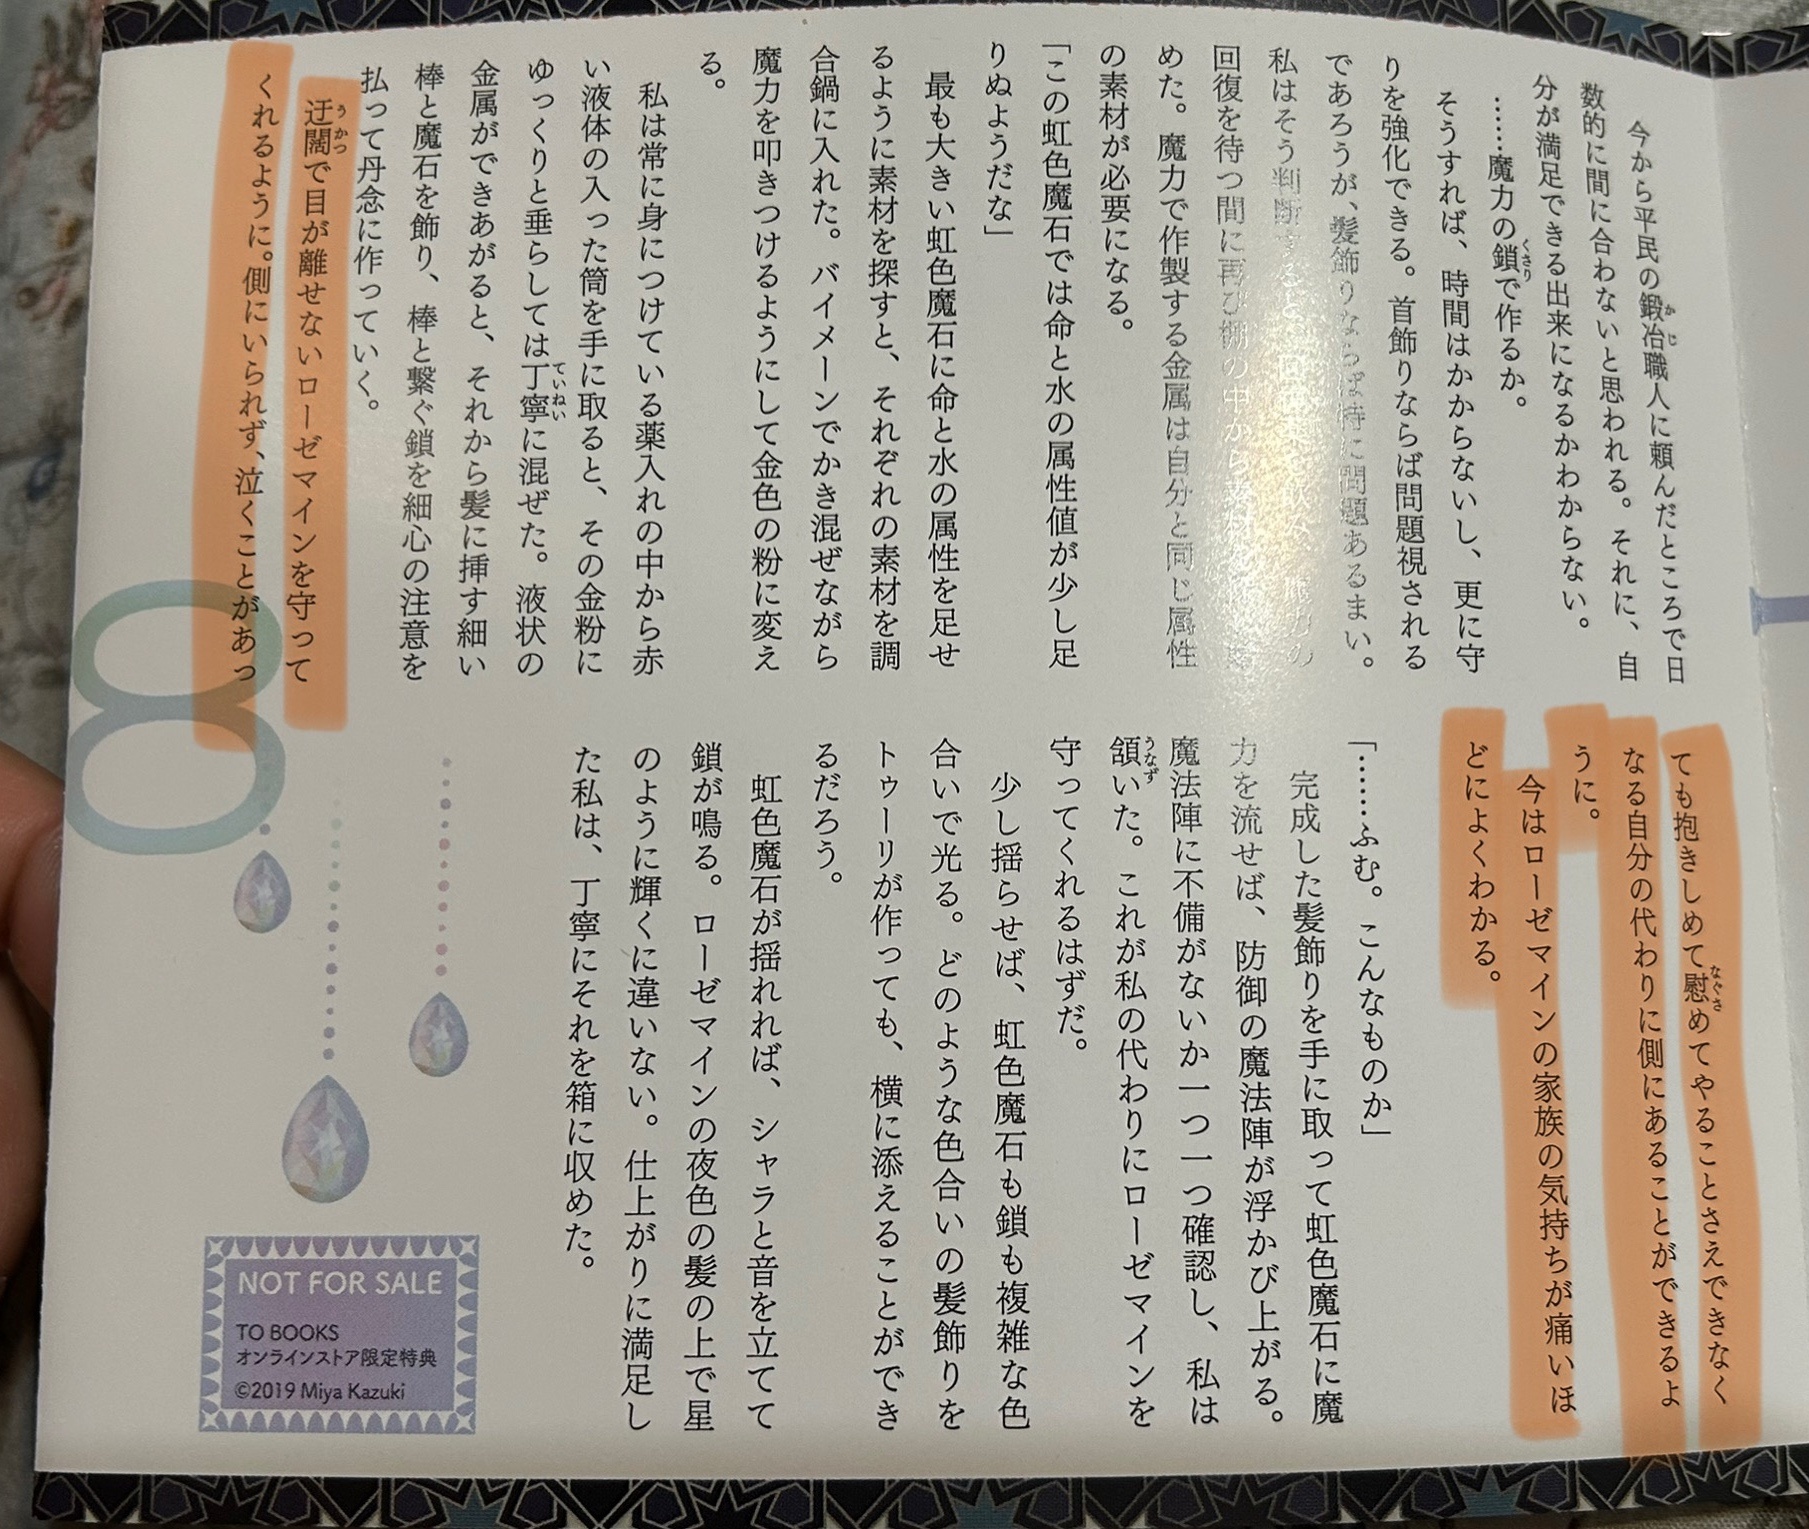 今から平民の鍛冶職人に頼んだところで日
数的に間に合わないと思われる。それに、自
分が満足できる出来になるかわからない。
……魔力の鎖で作るか。
そうすれば、時間はかからないし、更に守
りを強化できる。首飾りならば問題視される
であろうが、髪飾りならば特に問題あるまい。
私はそう判断すると、回復薬を飲み、魔力の
回復を待つ間に再び棚の中から素材を
めた。魔力で作製する金属は自分と同じ属性
の素材が必要になる。
「この虹色魔石では命と水の属性値が少し足
りぬようだな」
最も大きい虹色魔石に命と水の属性を足せ
るように素材を探すと、それぞれの素材を調
合鍋に入れた。バイメーンでかき混ぜながら
魔力を叩きつけるようにして金色の粉に変え
る。
私は常に身につけている薬入れの中から赤
い液体の入った筒を手に取ると、その金粉に
ゆっくりと垂らしては丁寧に混ぜた。液状の
金属ができあがると、それから髪に挿す細い
棒と魔石を飾り、棒と繋ぐ鎖を細心の注意を
払って丹念に作っていく。
迂闊で目が離せないローゼマインを守って
くれるように。側にいられず、泣くことがあっ
ても抱きしめて慰めてやることさえできなく
なる自分の代わりに側にあることができるよ
うに。
今はローゼマインの家族の気持ちが痛いほ
どによくわかる。
「……ふむ。こんなものか」
完成した髪飾りを手に取って虹色魔石に魔
力を流せば、防御の魔法陣が浮かび上がる。
魔法陣に不備がないか一つ一つ確認し、私は
頷いた。これが私の代わりにローゼマインを
守ってくれるはずだ。
少し揺らせば、虹色魔石も鎖も複雑な色
合いで光る。どのような色合いの髪飾りを
トゥーリが作っても、横に添えることができ
るだろう。
虹色魔石が揺れれば、シャラと音を立てて
鎖が鳴る。ローゼマインの夜色の髪の上で星
のように輝くに違いない。仕上がりに満足し
た私は、丁寧にそれを箱に収めた。
8
NOT FOR SALE
TO BOOKS
オンラインストア限定特典
©2019 Miya Kazuki